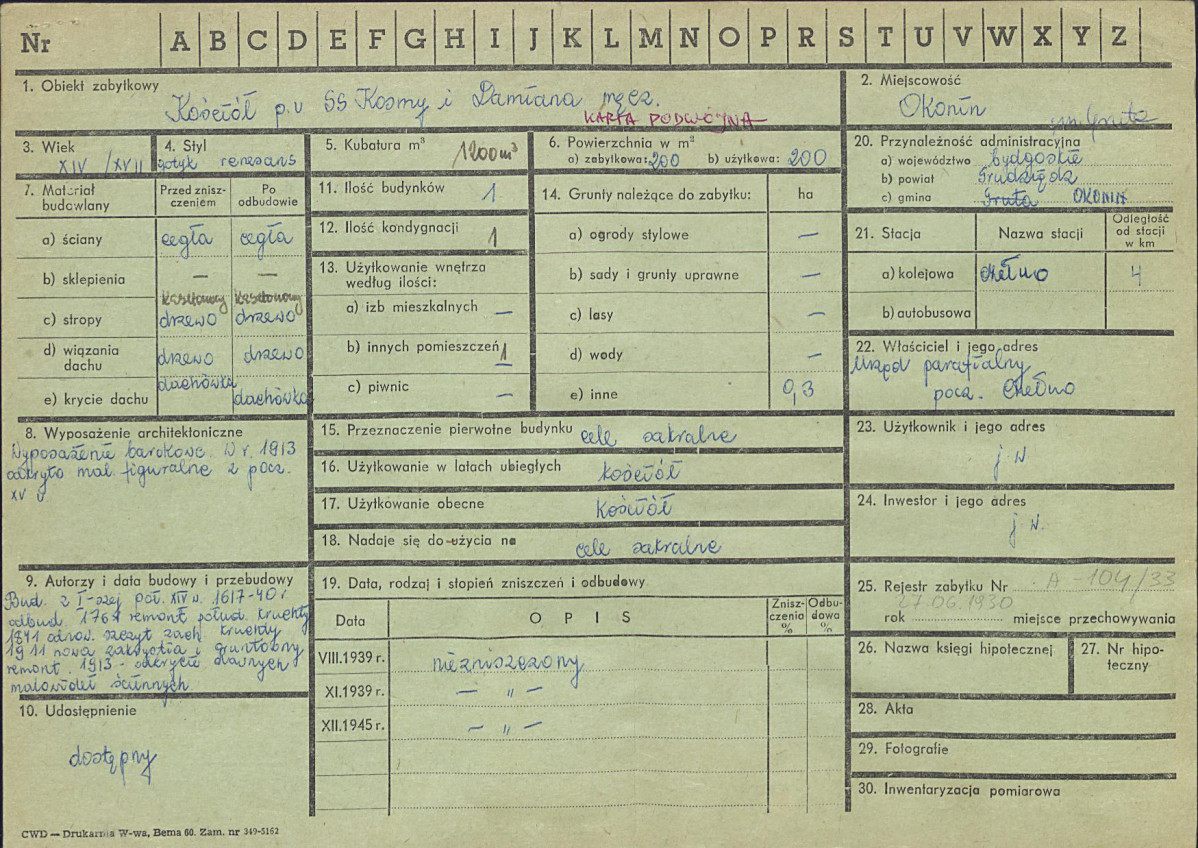 Nr A B C D E F G H I J K L M N O P R S T U V W X Y Z
1. Obiekt zabytkowy
Kościół p.w SS Kosmy i Damiana męcz.
KARTA PODWÓJNA
2. Miejscowość
Okonin
gm. Gruta
3. Wiek
XIV / XVII
4. Styl
gotyk renesans
5. Kubatura m³
1200 m³
6. Powierzchnia w m²
a) zabytkowa: 200 b) użytkowa: 200
20. Przynależność administracyjna
a) województwo bydgoskie
b) powiat Grudziądz
c) gmina Gruta OKONIN
7. Materiał budowlany
Przed zniszczeniem
Po odbudowie
a) ściany cegła cegła
b) sklepienia — —
kasetonowy kasetonowy
c) stropy drzewo drzewo
d) wiązania dachu drzewo drzewo
e) krycie dachu dachówka dachówka
11. Ilość budynków 1
12. Ilość kondygnacji 1
13. Użytkowanie wnętrza
według ilości:
a) izb mieszkalnych —
b) innych pomieszczeń 1
c) piwnic —
14. Grunty należące do zabytku: ha
a) ogrody stylowe —
b) sady i grunty uprawne —
c) lasy —
d) wody —
e) inne 0,3
21. Stacja Nazwa stacji Odległość od stacji w km
a) kolejowa Chełmno 4
b) autobusowa
22. Właściciel i jego adres
Urząd parafialny
pocz. Chełmno
8. Wyposażenie architektoniczne
Wyposażenie barokowe. W r. 1913
odkryto mal. figuralne z pocz.
XV w
15. Przeznaczenie pierwotne budynku cele sakralne
16. Użytkowanie w latach ubiegłych kościół
17. Użytkowanie obecne kościół
18. Nadaje się do użycia na cele sakralne
23. Użytkownik i jego adres
j. w.
24. Inwestor i jego adres
j. w.
9. Autorzy i data budowy i przebudowy
Bud. z I-szej poł. XIV w. 1617-40 r
odbud. 1764 remont połud. kruchty
1841 odnow. szczyt zach. kruchty
1911 nowa zakrystia i gruntowny
remont. 1913 - odkrycie dawnych
malowideł ściennych.
19. Data, rodzaj i stopień zniszczeń i odbudowy
Data O P I S Zniszczenia % Odbudowa %
VIII.1939 r. niezniszczony
XI.1939 r. — „ —
XII.1945 r. — „ —
25. Rejestr zabytku Nr A-104/33
27.06.1930
rok miejsce przechowywania
26. Nazwa księgi hipotecznej
27. Nr hipoteczny
10. Udostępnienie
dostępny
28. Akta
29. Fotografie
30. Inwentaryzacja pomiarowa
CWD — Drukarnia W-wa, Bema 60. Zam. nr 349-5162